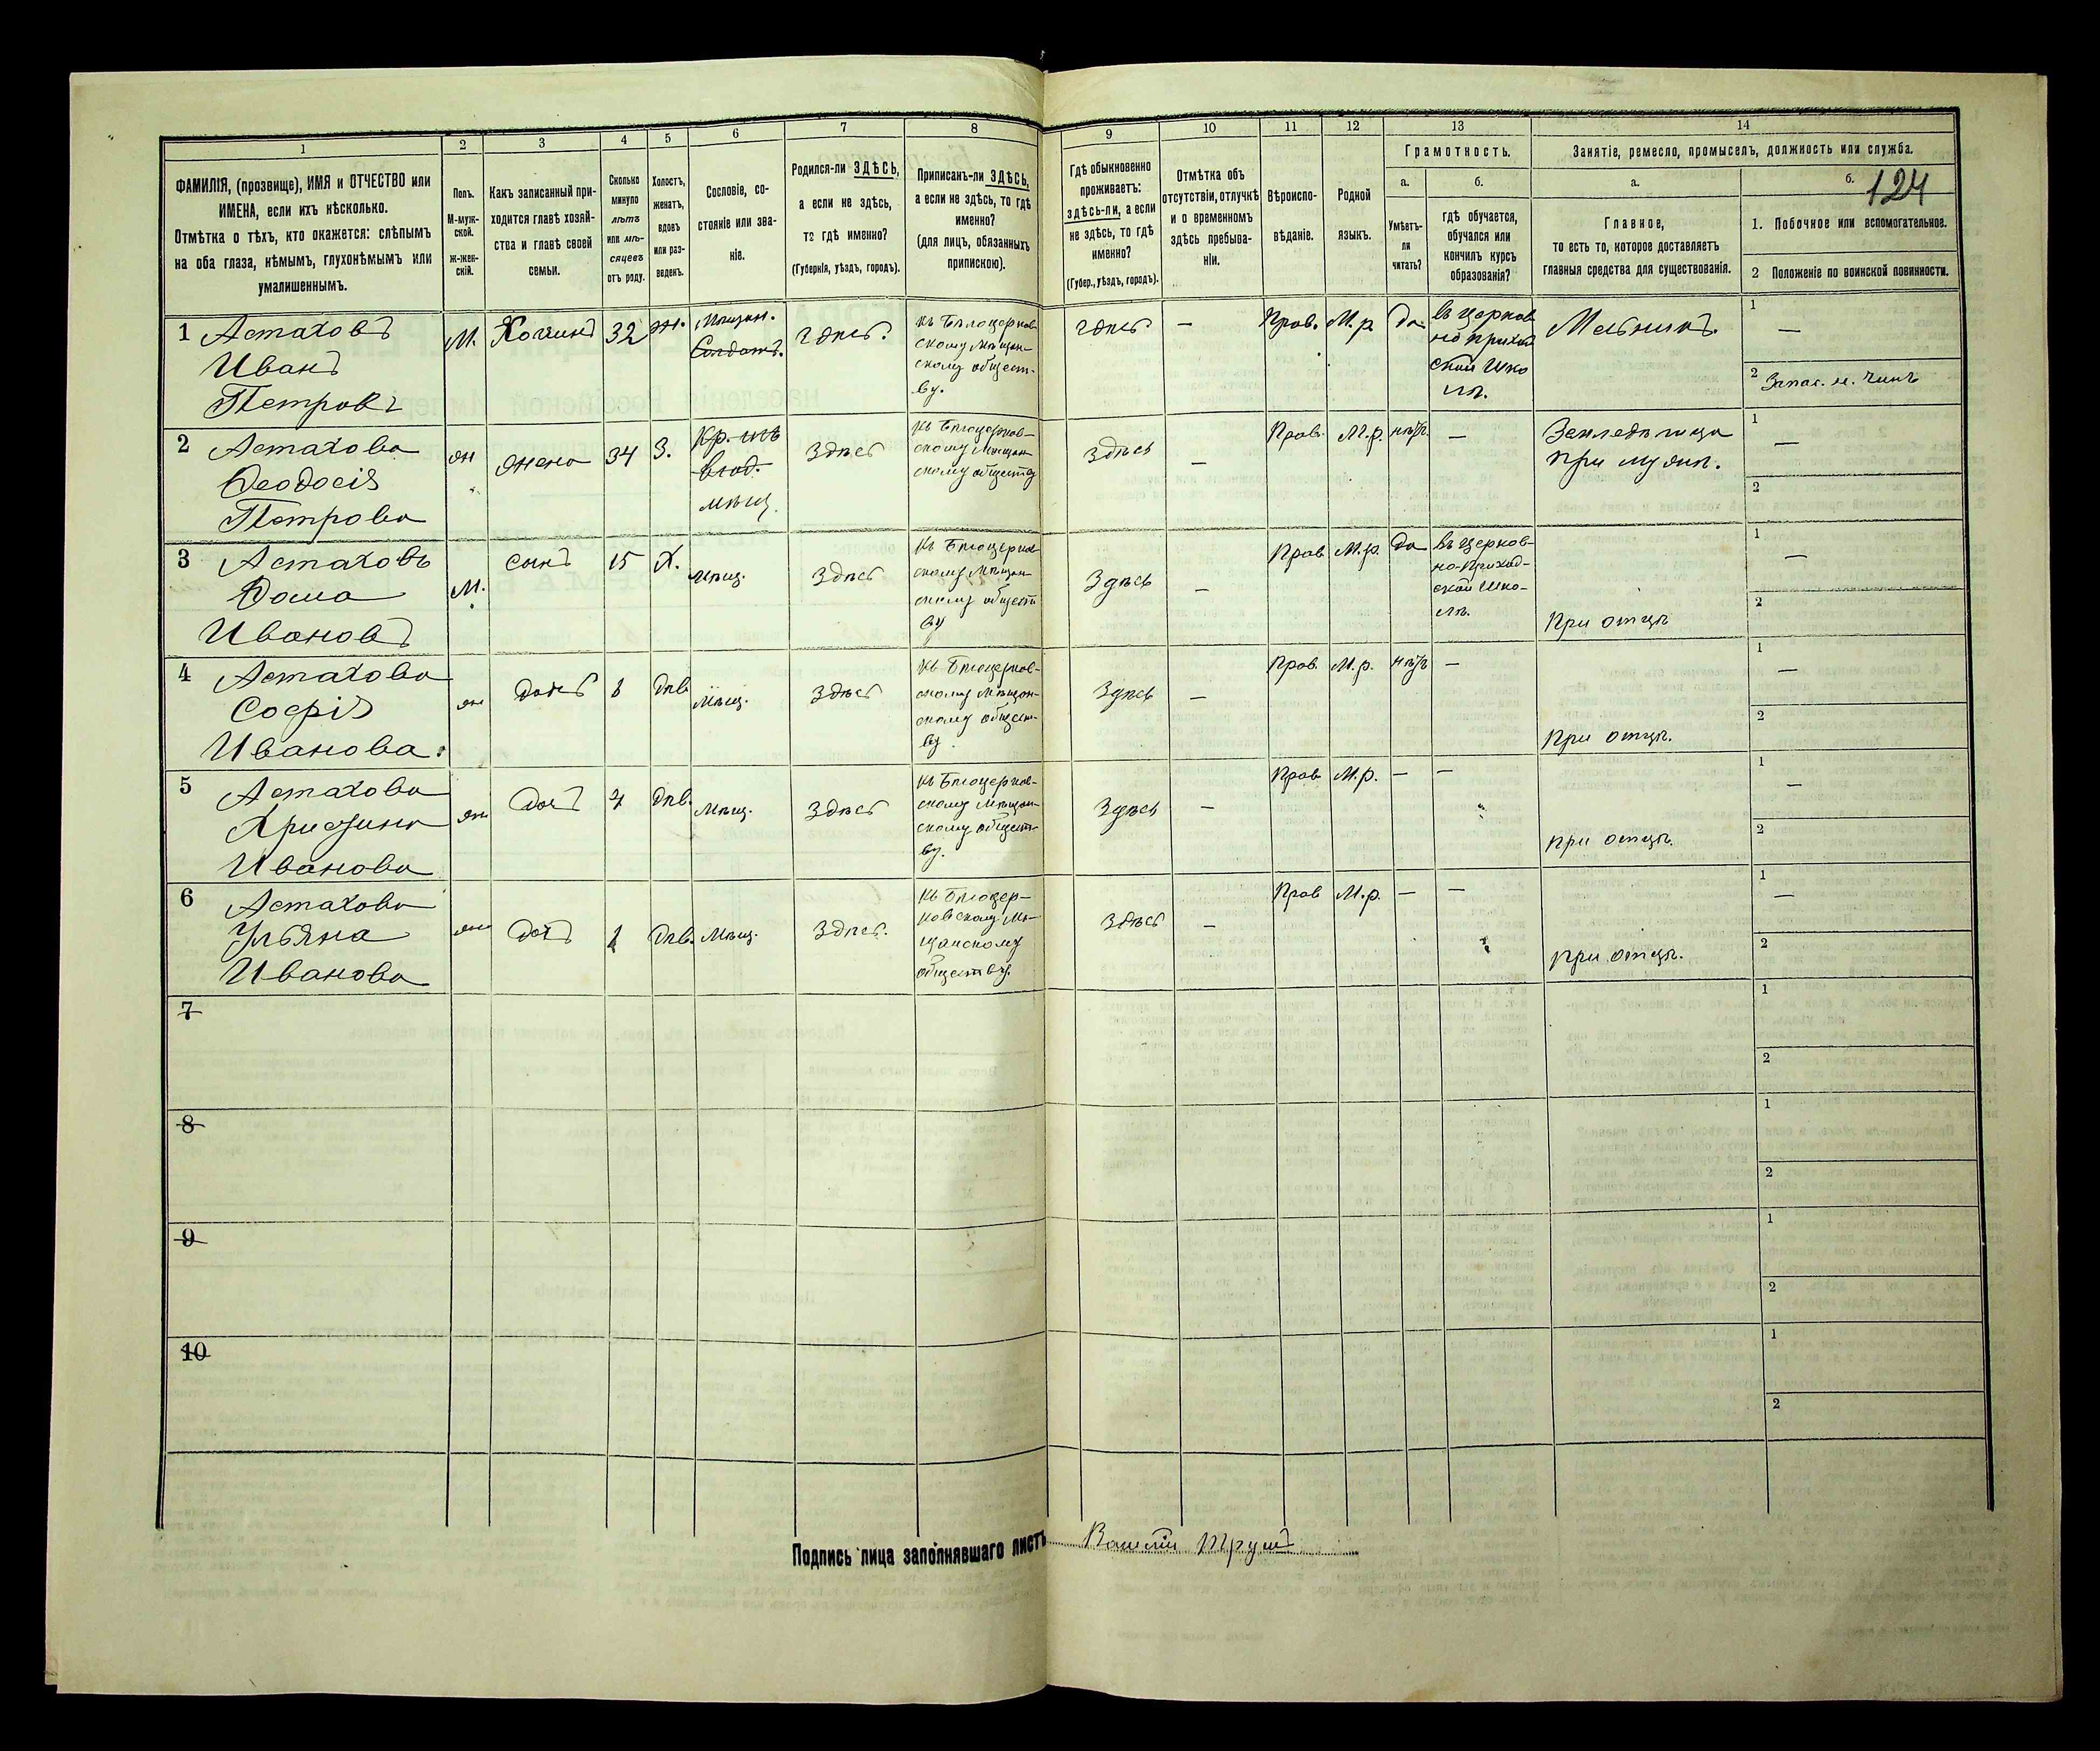 1
2
3
4
5
6
7
8
9
10
11
12
13
14
ФАМИЛІЯ, (прозвище), ИМЯ и ОТЧЕСТВО или
ИМЕНА, если ихъ нѣсколько.
Отмѣтка о тѣхъ, кто окажется: слѣпымъ
на оба глаза, нѣмымъ, глухонѣмымъ или
умалишеннымъ.
Полъ.
М-муж-
ской.
Ж-жен-
скій.
Какъ записанный при-
ходится главѣ хозяй-
ства и главѣ своей
семьи.
Сколько
минуло
лѣтъ
или мѣ-
сяцевъ
отъ роду.
Холостъ,
женатъ,
вдовъ
или раз-
веденъ.
Сословіе, со-
стояніе или зва-
ніе.
Родился-ли ЗДѢСЬ,
а если не здѣсь,
то гдѣ именно?
(Губернія, уѣздъ, городъ).
Приписанъ-ли ЗДѢСЬ,
а если не здѣсь, то гдѣ
именно?
(для лицъ, обязанныхъ
припискою).
Гдѣ обыкновенно
проживаетъ:
здѣсь-ли, а если
не здѣсь, то гдѣ
именно?
(Губер., уѣздъ, городъ).
Отмѣтка объ
отсутствіи, отлучкѣ
и о временномъ
здѣсь пребыва-
ніи.
Вѣроиспо-
вѣданіе.
Родной
языкъ.
Грамотность.
а.
Умѣетъ-
ли
читать?
б.
гдѣ обучается,
обучался или
кончилъ курсъ
образованія?
Занятіе, ремесло, промыселъ, должность или служба.
а.
Главное,
то есть то, которое доставляетъ
главныя средства для существованія.
б.
124
1. Побочное или вспомогательное.
2 Положеніе по воинской повинности.
1 Астаховъ
Иванъ
Петровъ
М.
Хозяинъ
32
ж.
Мѣщан.
Солдатъ.
Здѣсь.
Къ Бѣлоцерков-
скому Мѣщан-
скому общест-
ву.
Здѣсь
—
Прав.
М.р.
Да
въ Церков
но приход
ской Шко
лѣ.
Мельникъ.
1
—
2 Запас. н. чинъ
2 Астахова
Ѳеодосія
Петрова
ж
жена
34
З.
Мѣщ.
Здѣсь
Къ Бѣлоцерков-
скому Мѣщан-
скому обществу
Здѣсь
—
Прав.
М.р.
нѣтъ
—
при мужѣ.
1
—
2
3 Астаховъ
Ѳома
Ивановъ
М.
сынъ
15
Х.
Мѣщ.
Здѣсь
Къ Бѣлоцерков
скому Мѣщан-
скому общест
ву
Здѣсь
—
Прав
М.р.
Да
въ Церков-
но-Приход-
ской Шко-
лѣ.
При отцѣ
1
—
2
4 Астахова
Софія
Иванова.
ж
дочь
8
дѣв
Мѣщ.
Здѣсь
Къ Бѣлоцерков-
скому Мѣщан-
скому общест-
ву.
Здѣсь
—
Прав.
М.р.
нѣтъ
—
При отцѣ.
1
—
2
5 Астахова
Христина
Иванова
ж
дочь
4
дѣв.
Мѣщ.
Здѣсь
Къ Бѣлоцерков-
скому Мѣщан-
скому общест-
ву.
Здѣсь
—
Прав
М.р.
—
—
при отцѣ.
1
—
2
6 Астахова
Ульяна
Иванова
ж
дочь
1
дѣв.
Мѣщ.
Здѣсь.
Къ Бѣлоцер-
ковскому Мѣ-
щанскому
обществу.
Здѣсь
—
Прав
М.р.
—
—
при отцѣ.
1
—
2
7
1
2
8
1
2
9
1
2
10
1
2
Подпись лица заполнявшаго листъ